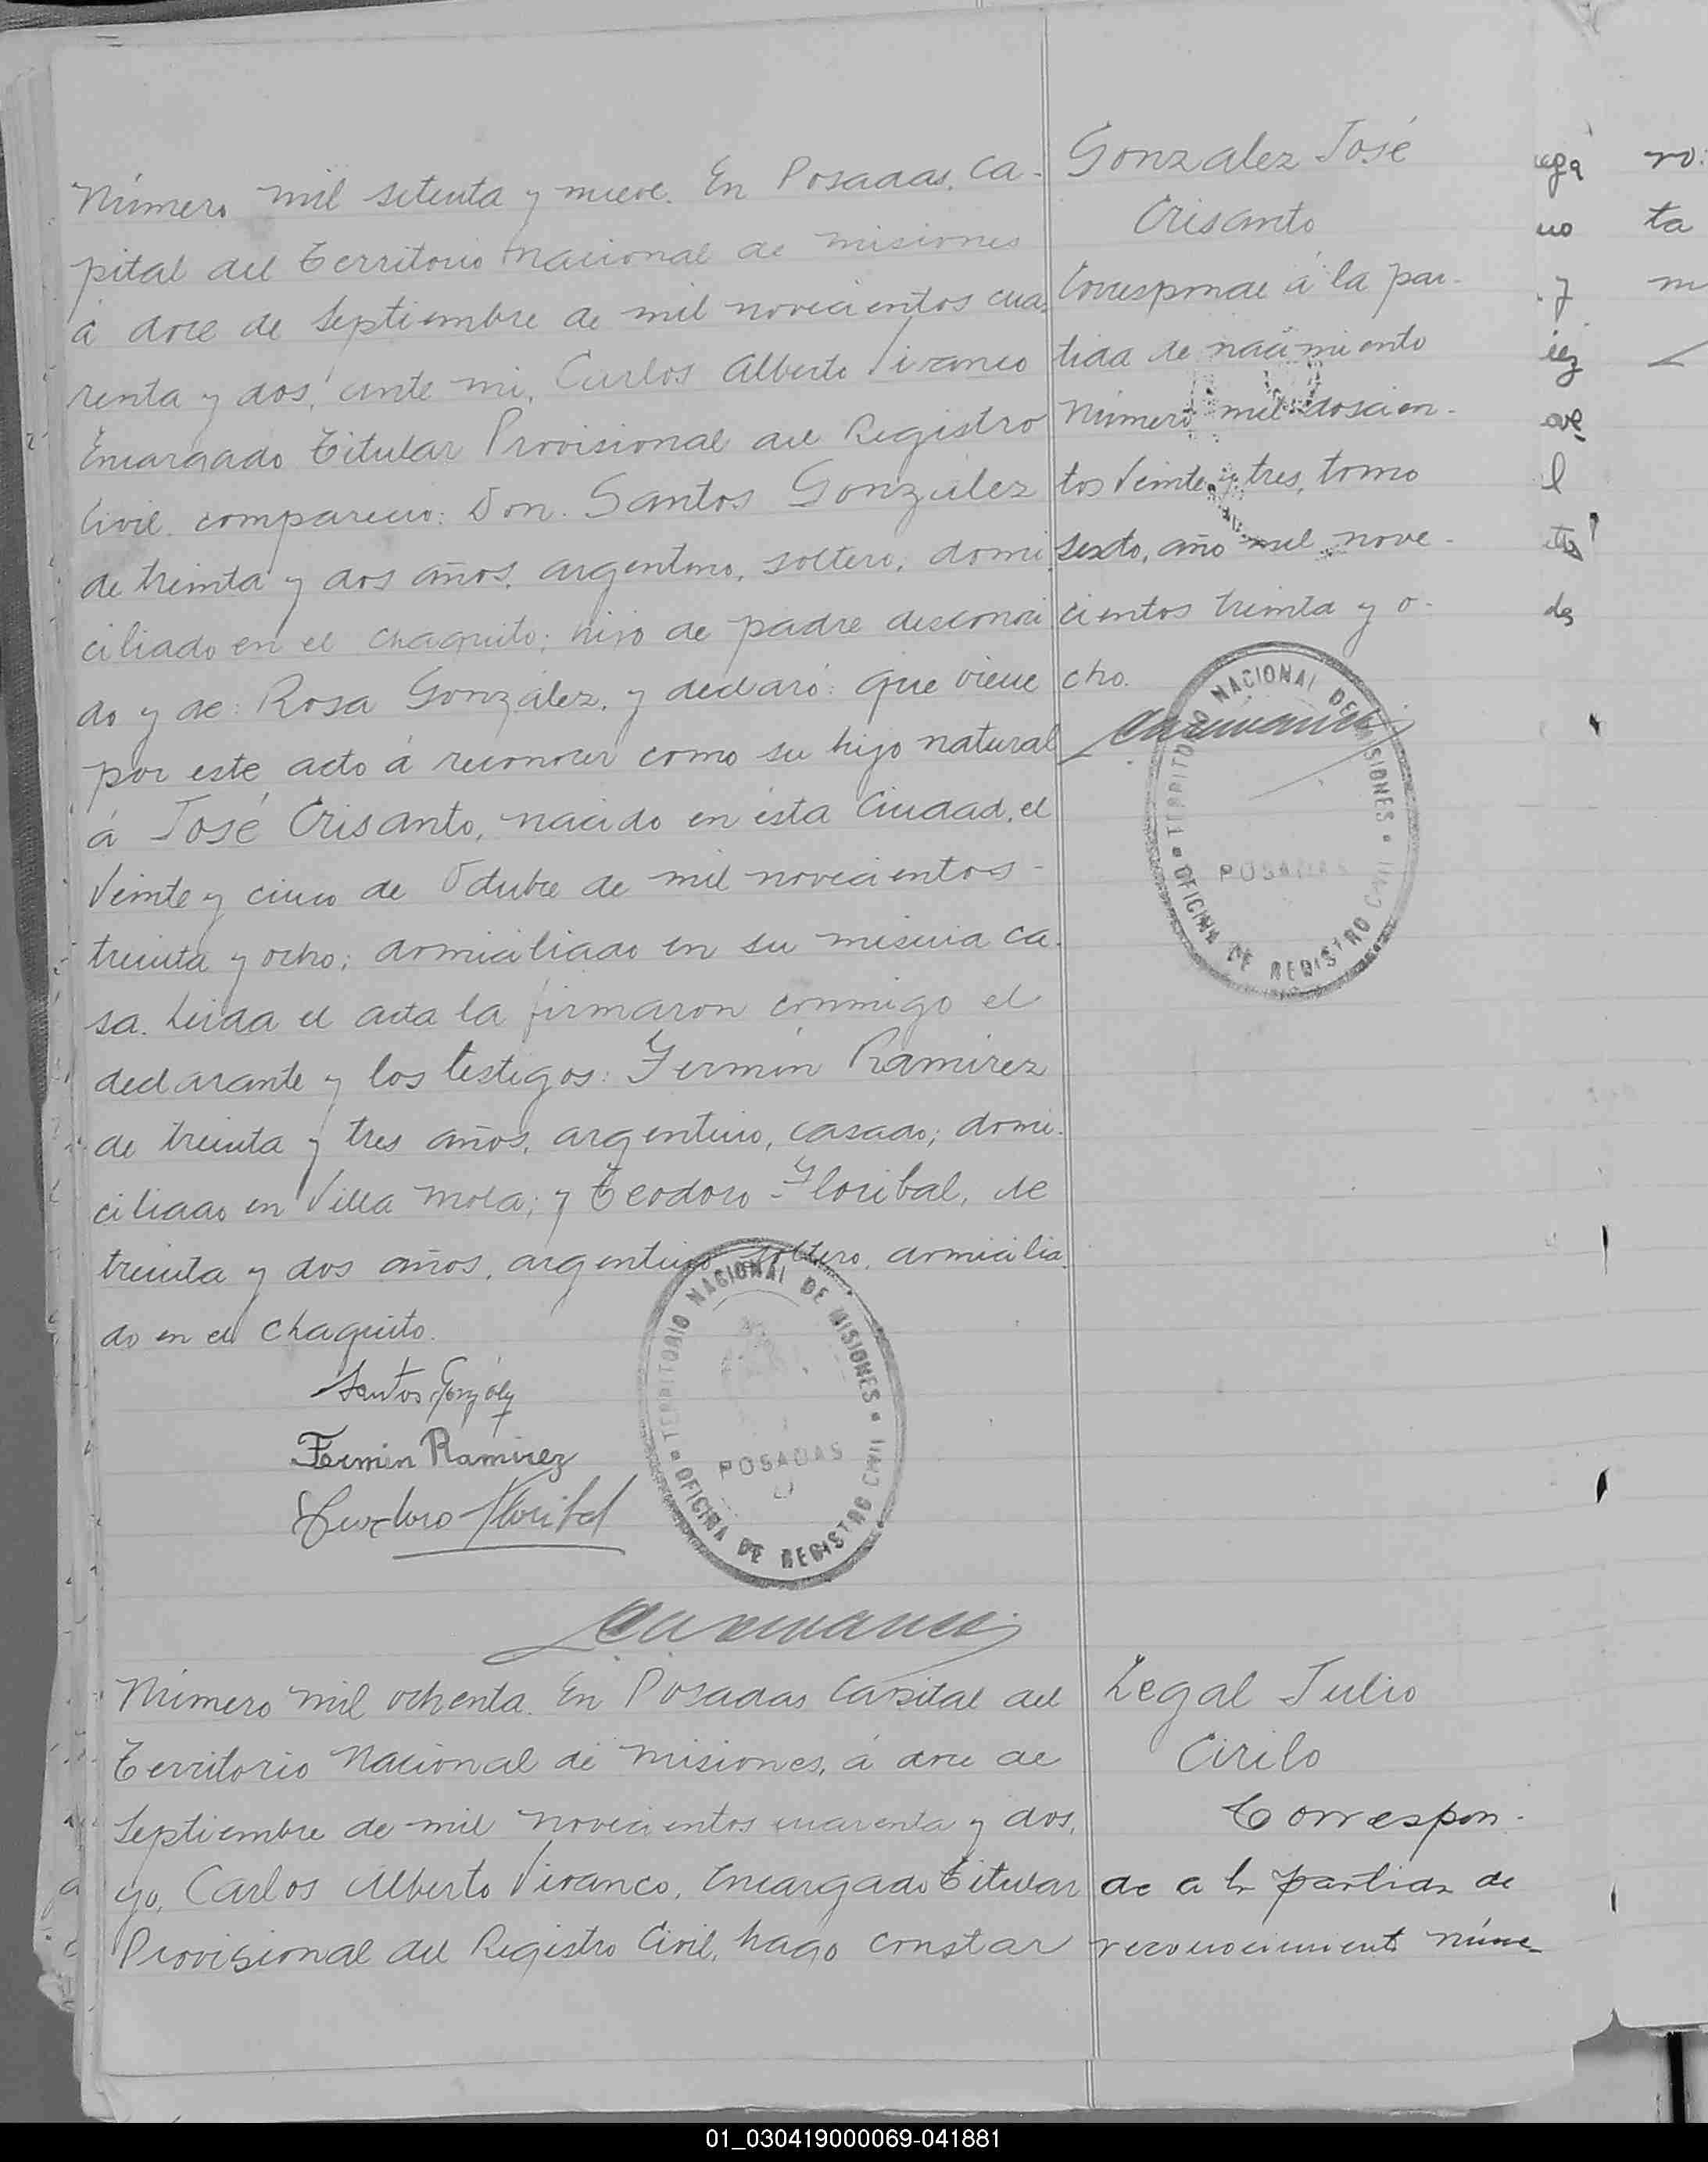 Número mil setenta y nueve. En Posadas, Ca-
pital del Territorio Nacional de Misiones
á doce de Septiembre de mil novecientos cua-
renta y dos, ante mi, Carlos Alberto Vivanco
Encargado Titular Provisional del Registro
Civil. compareció: Don. Santos González
de treinta y dos años, argentino, soltero, domi-
ciliado en el Chaquito; hijo de padre desconoci
do y de: Rosa González, y declaró: que viene
por este acto á reconocer como su hijo natural
á José Crisanto, nacido en ésta Ciudad, el
Veinte y cinco de Octubre de mil novecientos-
treinta y ocho; domiciliado en su misma ca-
sa. Leida el acta la firmaron conmigo el
declarante y los testigos: Fermin Ramirez
de treinta y tres años, argentino, casado; domi-
ciliado en Villa Mola; y Teodoro Floribal, de
treinta y dos años, argentino, soltero, domicilia-
do en el Chaquito.
Santos González
Fermin Ramirez
Teodoro Floribal
TERRITORIO NACIONAL DE MISIONES
POSADAS
OFICINA DE REGISTRO CIVIL
Gonzalez José
Crisanto
Corresponde á la par-
tida de nacimiento
Número mil doscien-
tos Veinte y tres, tomo
sexto, año mil nove-
cientos treinta y o-
cho.
TERRITORIO NACIONAL DE MISIONES
POSADAS
OFICINA DE REGISTRO CIVIL
Número mil ochenta. En Posadas Capital del
Territorio Nacional de Misiones, á doce de
Septiembre de mil novecientos cuarenta y dos,
yo, Carlos Alberto Vivanco, Encargado Titular
Provisional del Registro Civil, hago constar
Legal Julio
Cirilo
Correspon-
de a la partida de
reconocimiento núme-
ro:
ta
01_030419000069-041881